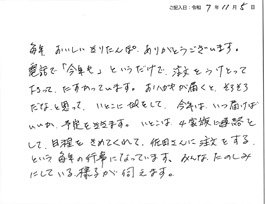 ご記入日：令和 7年 11月 5日
毎年 おいしいきりたんぽ、ありがとうございます。
電話で「今年も」というだけで、注文をうけとって
もらって、たすかっています。おハガキが届くと、そろそろ
だな、と思って、いとこにTELをして、今年は、いつ届けば
いいか、予定をききます。いとこは、4家族に連絡を
して、日程をきめてくれて、佐田さんに注文をする、
という毎年の行事になっています。みんな、たのしみ
にしている様子が伺えます。